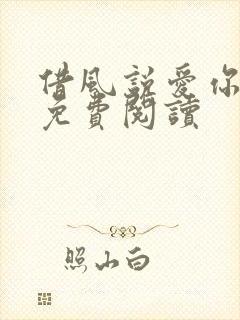 借風説愛你
免費閱讀
照山白